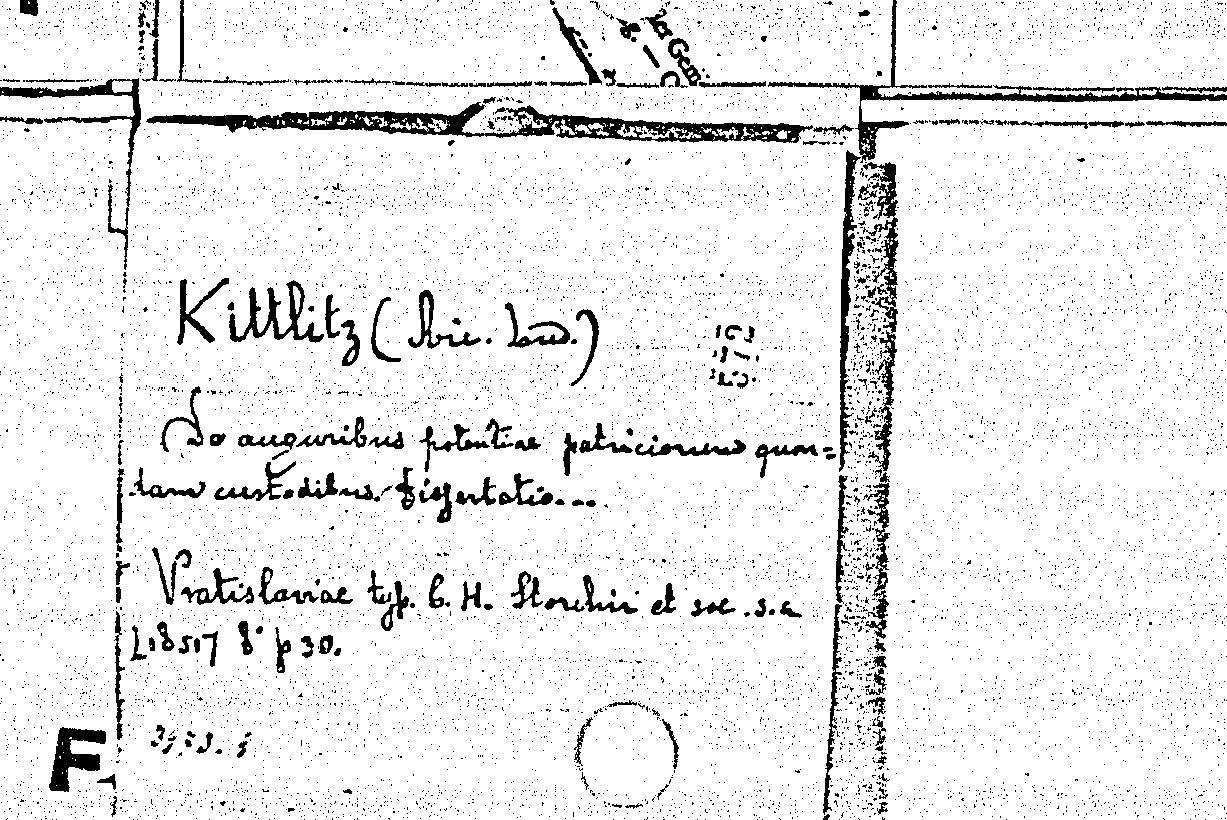 der Gemi
8. — G
Kittlitz (Ric. Lud.)
De auguribus potentiae patriciorum quon=
dam custodibus. Dissertatio...
Vratislaviae typ. C. H. Storchii et soc. s.a
[1857] 8° p 30.
F